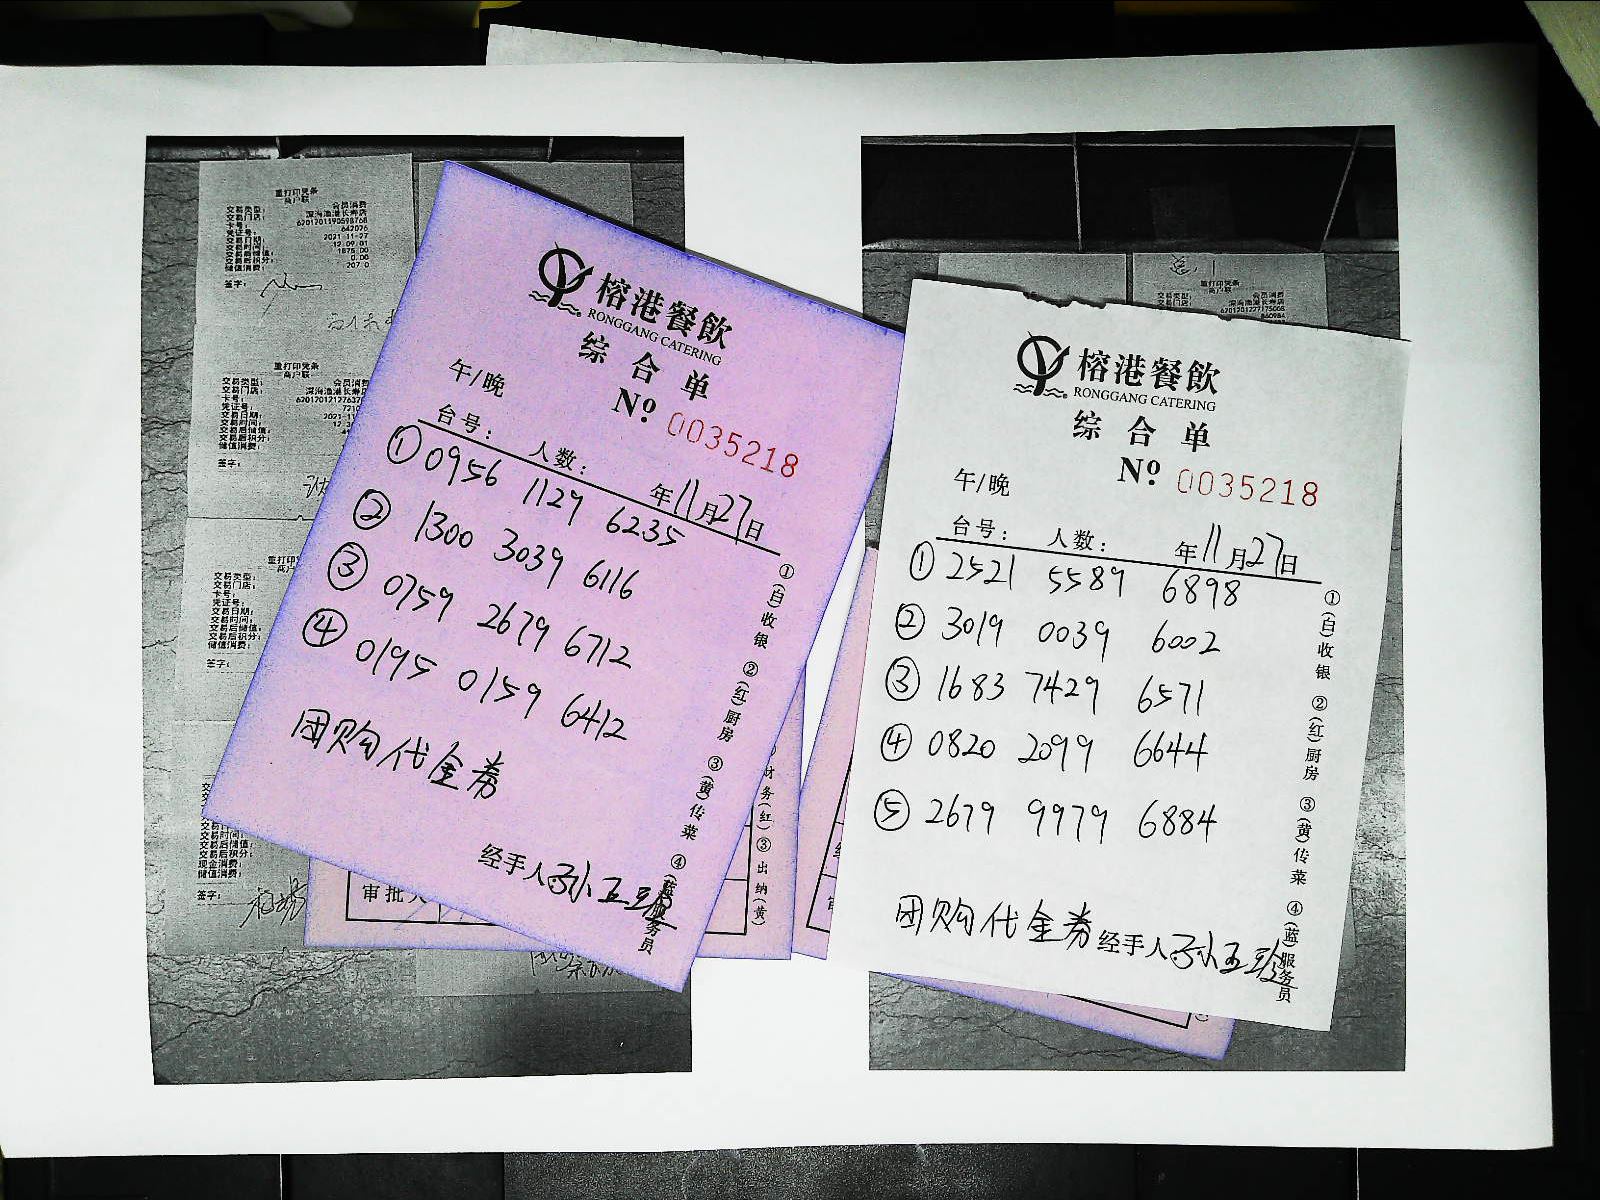 重打印凭条
商户联
交易类型: 会员消费
交易门店: 深海渔港长寿店
卡号: 6201201190598768
凭证号: 642026
交易日期: 2021-11-27
交易时间: 12:09:01
交易后储值: 1875.00
交易后积分: 0.00
储值消费: 207.0
签字:
重打印凭条
商户联
交易类型: 会员消费
交易门店: 深海渔港长寿店
卡号:
凭证号:
交易日期:
交易时间:
交易后储值:
交易后积分:
储值消费:
签字:
重打印
交易类型:
交易门店:
卡号:
凭证号:
交易日期:
交易时间:
交易后储值:
交易后积分:
储值消费:
签字:
交易时间:
交易后储值:
交易后积分:
现金消费:
储值消费:
签字:
榕港餐飲
RONGGANG CATERING
综合单
午/晚 Nº 0035218
台号: 人数: 年11月27日
① 0956 1129 6235
② 1300 3039 6116
③ 0759 2679 6712
④ 0195 0159 6412
团购代金券
经手人:孙五珍
①(白)收银 ②(红)厨房 ③(黄)传菜 ④(蓝)服务员
财务(红) ③出纳(黄)
审批人
重打印凭条
商户联
交易类型: 会员消费
交易门店: 深海渔港长寿店
榕港餐飲
RONGGANG CATERING
综合单
Nº 0035218
午/晚
台号: 人数: 年11月27日
① 2521 5589 6898
② 3019 0039 6002
③ 1683 7429 6571
④ 0820 2099 6644
⑤ 2679 9979 6884
团购代金券
经手人:孙五珍
①(白)收银 ②(红)厨房 ③(黄)传菜 ④(蓝)服务员